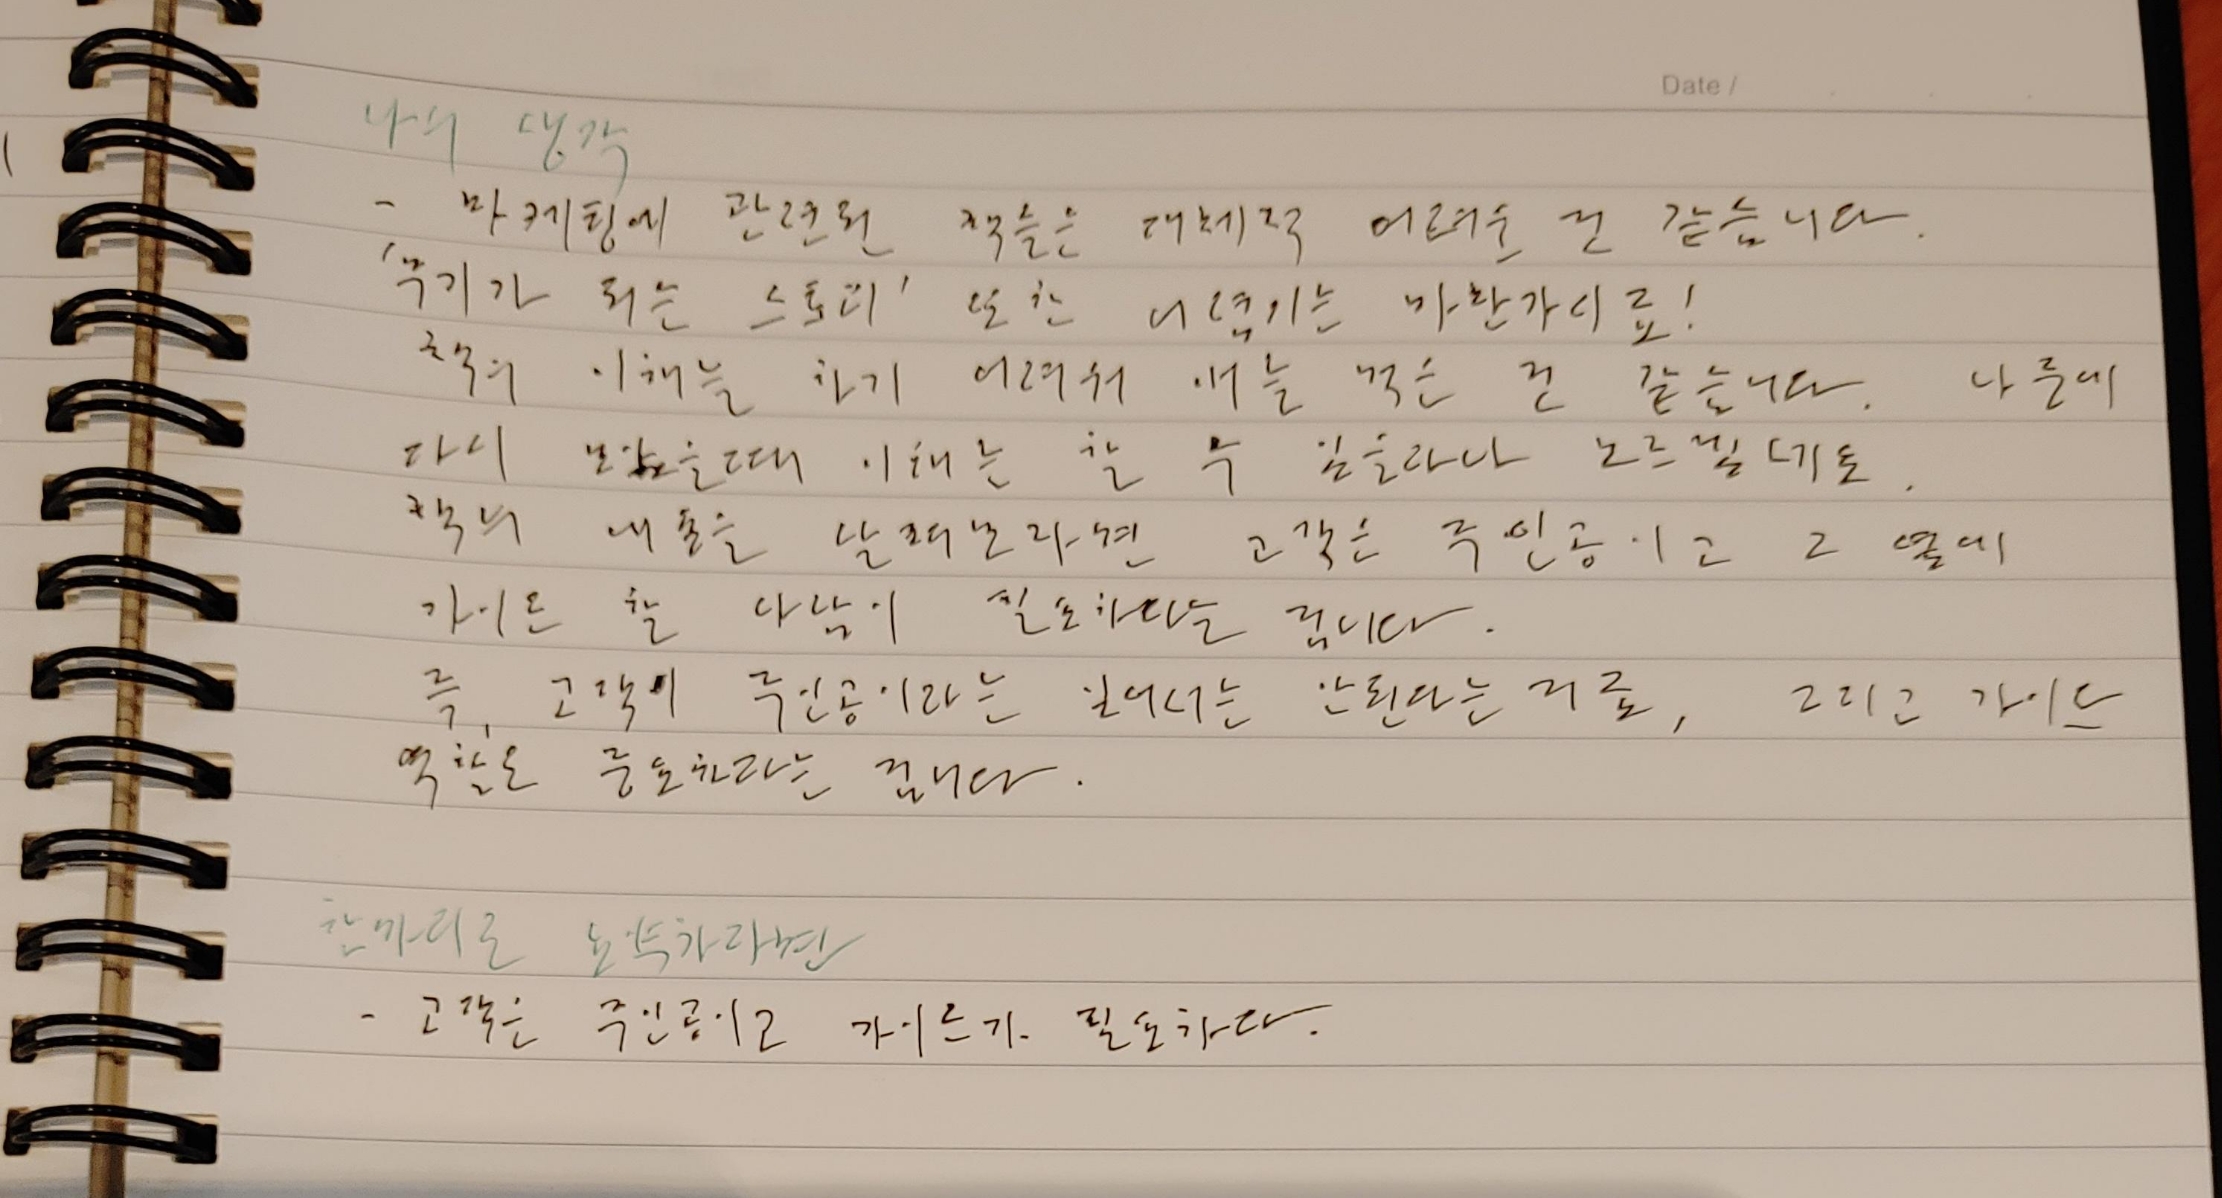 Date /
나의 생각
- 마케팅에 관련된 책들은 대체적 어려운 건 같습니다.
'무기가 되는 스토리' 또한 어렵기는 마찬가지로!
책의 이해를 하기 어려워 애를 먹은 건 같습니다. 나중에
다시 보았을때 이해는 할 수 있을라나 모르겠네요.
책의 내용을 살펴보라면 고객은 주인공이고 그 옆에
가이드 할 사람이 필요하다는 겁니다.
즉, 고객이 주인공이라는 잊어서는 안된다는거로, 그리고 가이드
역할로 중요하다는 겁니다.
한마디로 요약하라면
- 고객은 주인공이고 가이드가 필요하다.